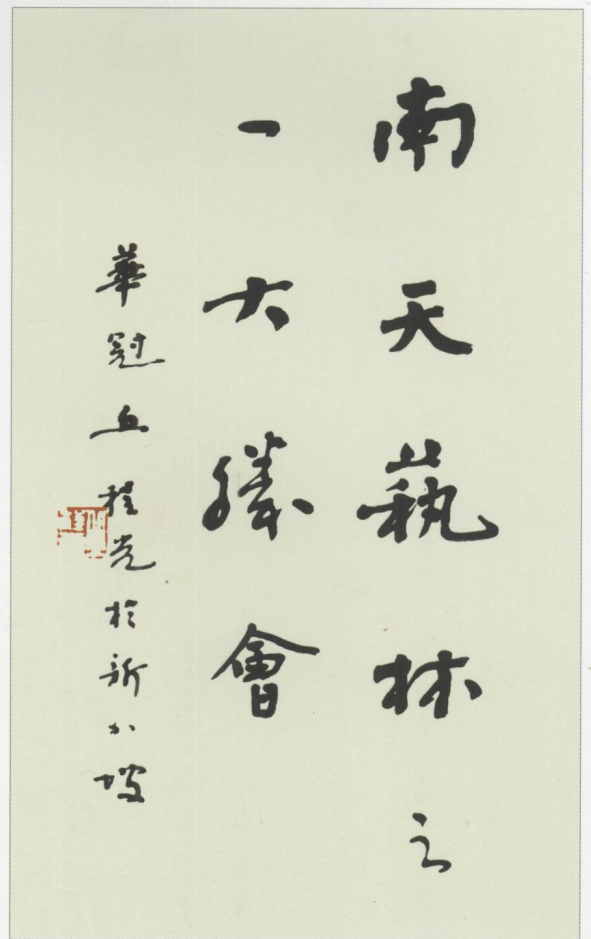 南天藝林之
一大勝會
華冠丘程光於新加坡